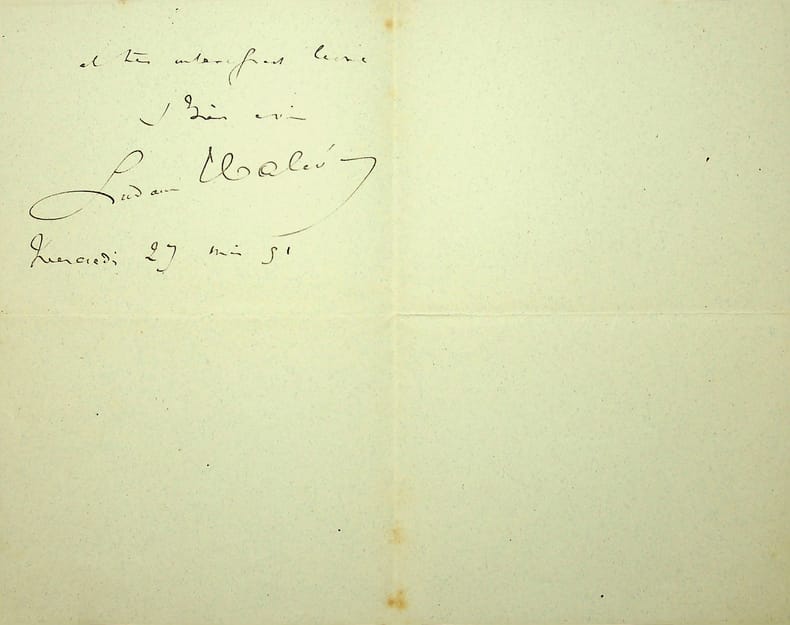 et très intéressant livre
Bien
Ludovic Halévy
Mercredi 27 mai 91